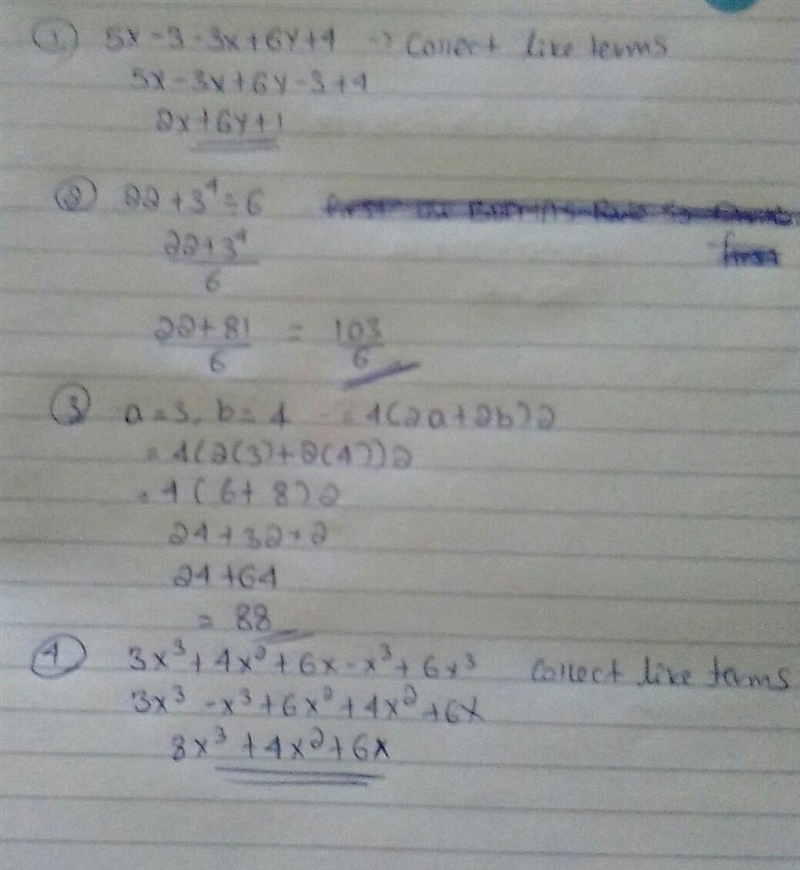 ① 5x-3-3x+6y+4 → Collect like terms
5x-3x+6y-3+4
2x+6y+1
② 22+3⁴÷6
22+3⁴
6
22+81 = 103
6 6
③ a=3, b=4 =4(2a+2b)2
=4(2(3)+2(4))2
=4(6+8)2
24+32×2
24+64
= 88
④ 3x³+4x²+6x-x³+6x³ Collect like terms
3x³-x³+6x³+4x²+6x
8x³+4x²+6x